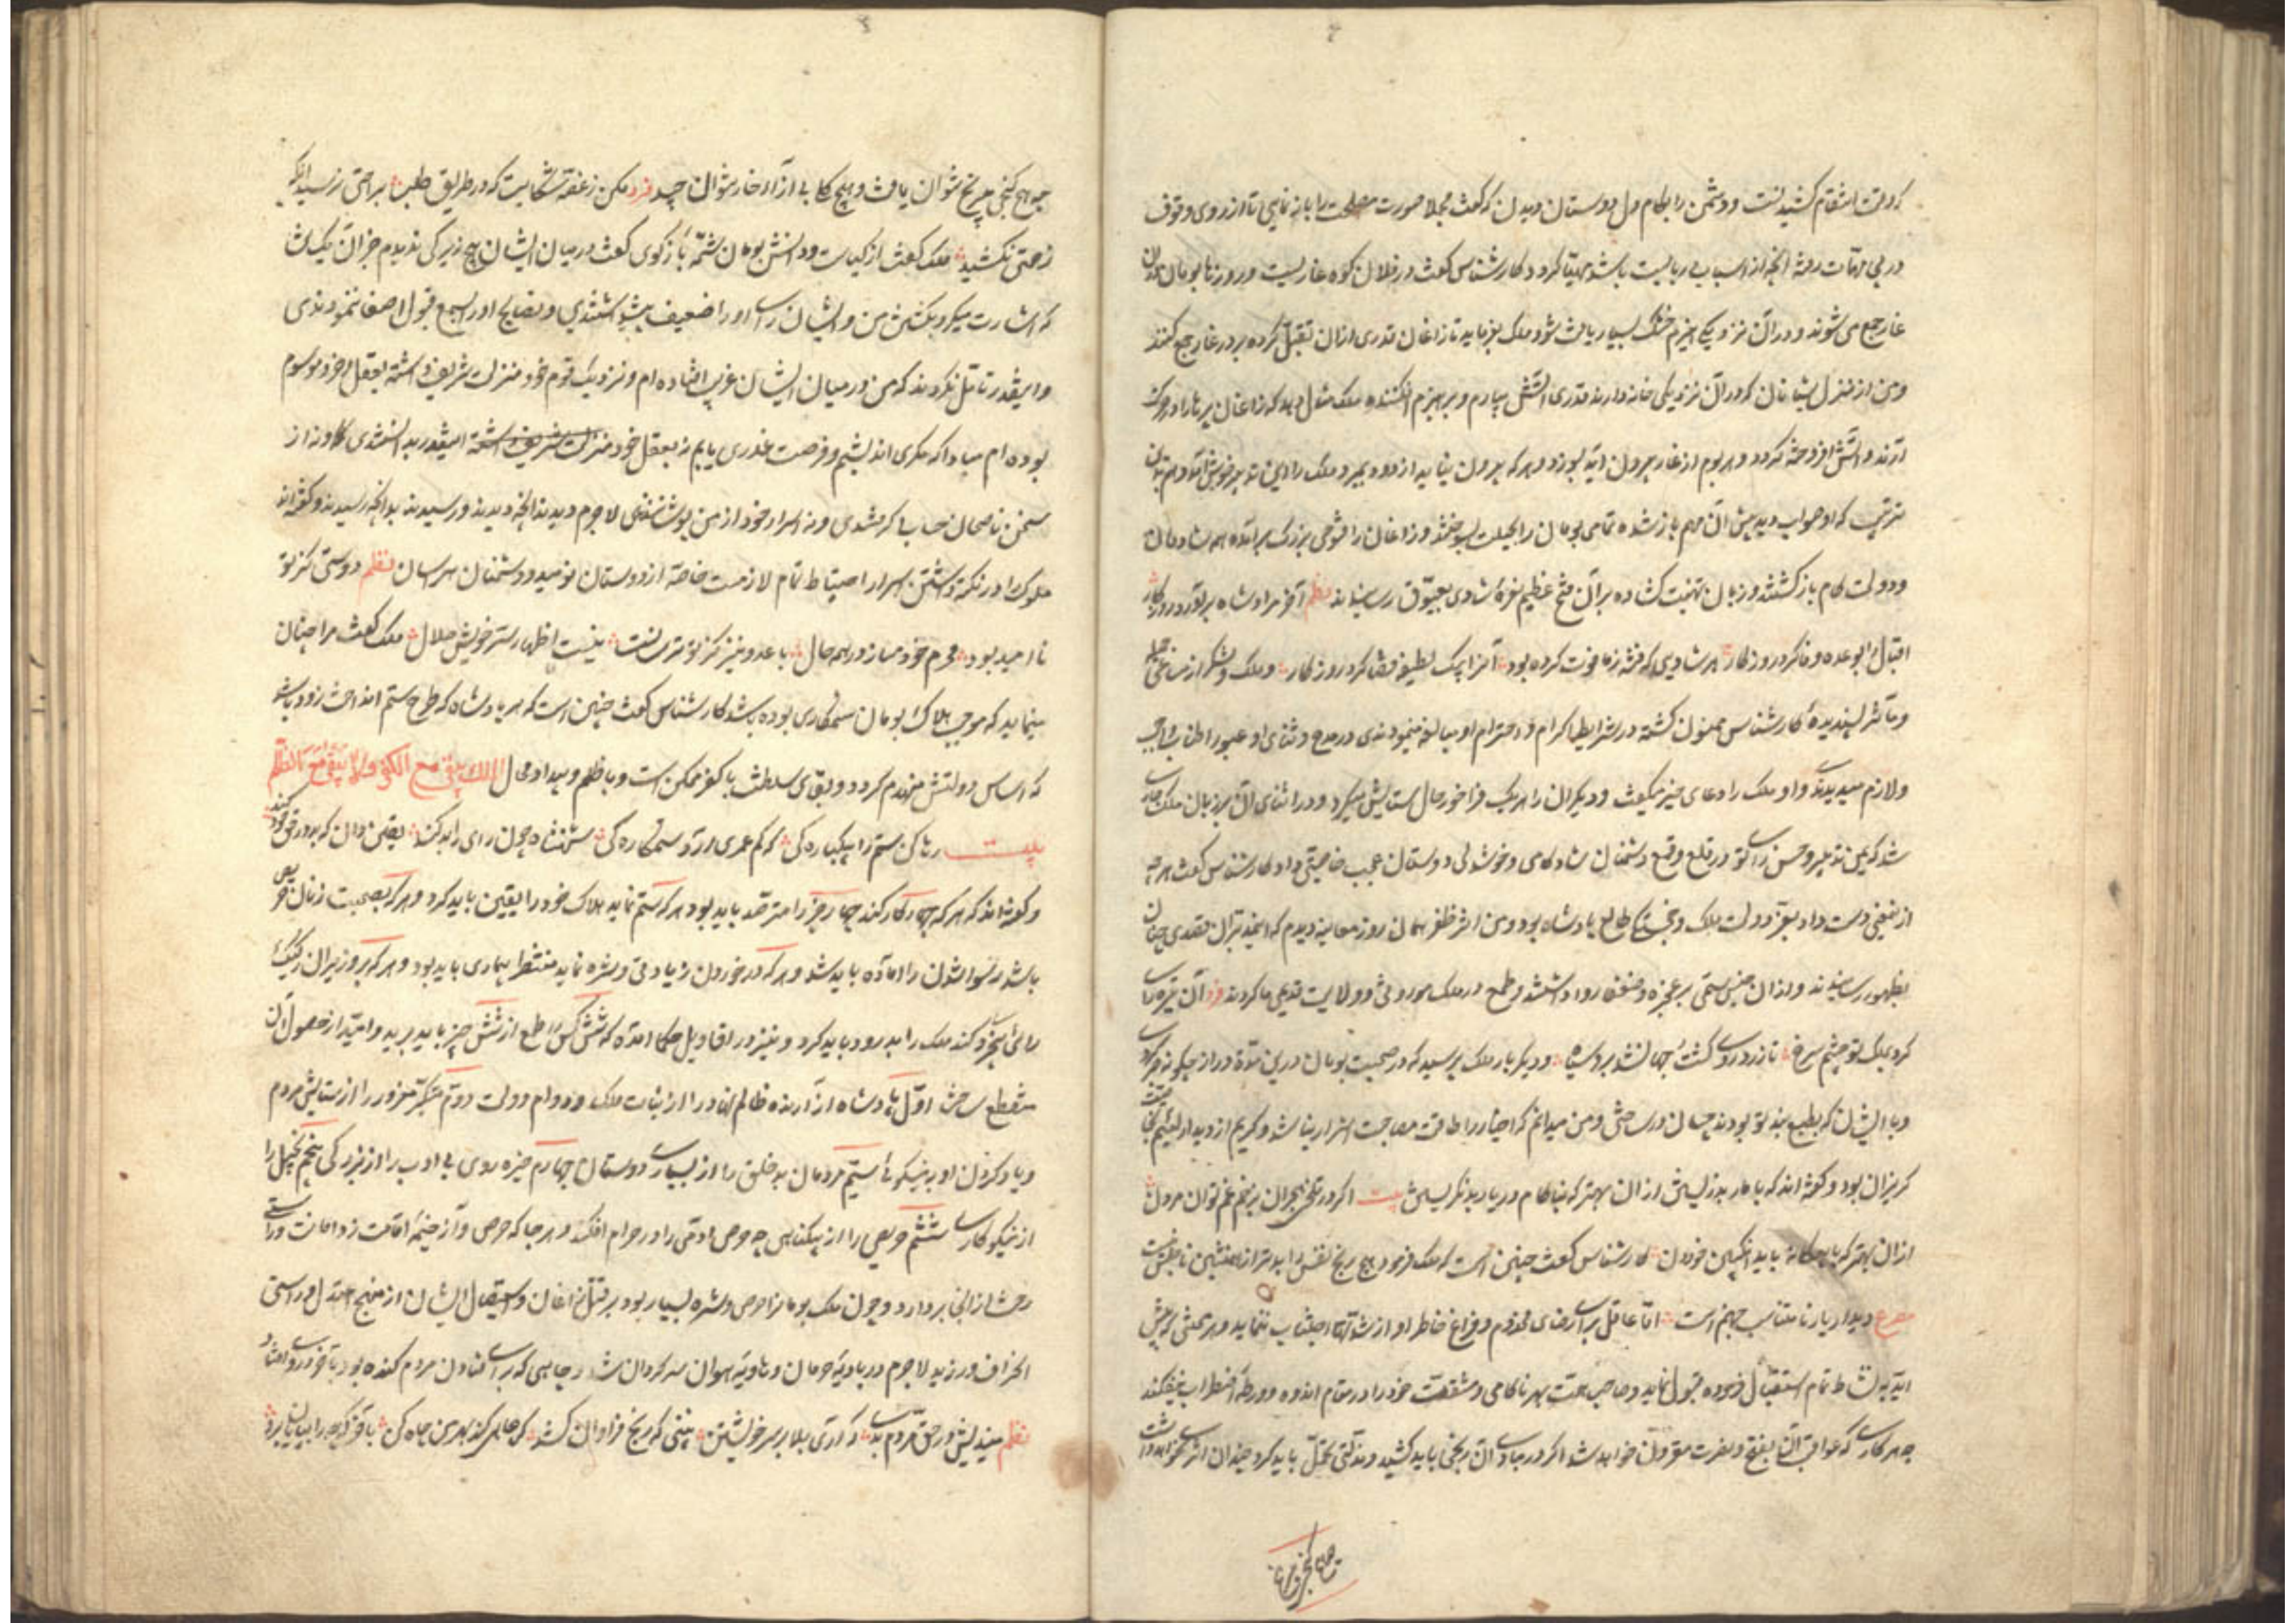 که وقت انتقام کشیدنست و دشمن را بکام دل دوستان دیدن ملک گفت مجملا صورت مصلحت را باز نمایی تا از روی وقوف
در پی مهمات رفته آنچه از اسباب دربایست باشد مهیا گردد کارشناس گفت در فلان کوه غاریست و روزها بومان در آن
غار جمع می شوند و در آن نزدیکی هیزم خشک بسیار یافت شود ملک بفرماید تا زاغان قدری از آن نقل کرده بر در غار جمع کنند
و من از منزل شبانان که در آن نزدیکی خانه دارند قدری آتش بیارم و بر هیزم افکنند ملک مثال دهد که زاغان پرها را در حرکت
آرند و آتش افروخته گردد و هر بوم از غار بیرون آید بسوزد و هر که بیرون نیاید از دود بمیرد ملک را این تدبیر خوش آمد و هم بدان
ترتیب که او صواب دید پیش آن مهم باز شده تمامی بومان را بحیلت بسوختند و زاغان را فتوحی بزرگ برآمده همه شادمان
و دولت کام بازگشتند و زبان تهنیت گشاده بر آن فتح عظیم نعره شادی بعیوق رسانیدند نظم آخر مراد شاه برآورد روزگار
اقبال را بوعده وفا کرد روزگار هر شادیی که فتنه زما فوت کرده بود آنرا بیک لطیفه قضا کرد روزگار و ملک و لشکر از مساعی جمیله
و مآثر پسندیده کارشناس ممنون گشته در شرایط اکرام و احترام او مبالغه مینمودندی و در مدح و ثنای او عبور اطناب واجب
و لازم میدیدند و او ملک را دعای خیر میگفت و دیگران را هر یک فراخور حال ستایش میکرد و در اثنای آن بر زبان ملک جاری
شد که یمن تدبیر و حسن رای تو در قلع و قمع دشمنان شادکامی و خوشدلی دوستان عجب خاصیتی داد کارشناس گفت هر چه
از این معنی دست داد بفر دولت ملک و خجستگی طالع پادشاه بود و من اثر ظفر همان روز معاینه دیدم که آن مدبران قصدی چنان
بظهور رسانیدند و از آن جنس ستمی بر عجزه و ضعفا روا داشتند و طمع در ملک موروثی و ولایت قدیمی ما کردند فرد آن تیره رای
کرد بملک تو چشم سرخ تا زرد روی گشت جهانش برو سیاه و دیگر بار ملک پرسید که در صحبت بومان درین مدت دراز چگونه صبر کردی
و با ایشان که بطبع ضد تو بودند چسان درساختی و من میدانم که اخیار را طاقت مصاحبت اشرار نباشد و کریم از دیدار لئیم
گریزان بود و گفته اند که با مار بد زیستن از آن بهتر که بناکام در یار بد نگریستن بیت اگر در تلخی هجران بزخم غم توان مردن
از آن بهتر که با بیگانه باید انگبین خوردن کارشناس گفت چنین است که ملک فرمود هیچ رنج نفس را بدتر از همنشین ناجنس نیست
مصرع دیدار یار نامتناسب جهنم است اما عاقل برای رضای مخدوم و فراغ خاطر او از شدتها اجتناب ننماید و هر محنتی که پیش
آید بنشاط تمام استقبال فرموده قبول نماید و صاحب همت بهر ناکامی و مشقت خود را در مقام اندوه و ورطه اضطراب نیفکند
چه هر کاری که عواقب آن بفتح و نصرت مقرون خواهد شد اگر در مبادی آن رنجی باید کشید و مذلتی تحمل باید کرد چندان اثر نخواهد داشت
چه هیچ گنجی بیرنج نتوان یافت و هیچ گلی بی آزار خار نتوان چید فرد مکن ز غصه شکایت که در طریق طلب براحتی نرسید آنکه
زحمتی نکشید ملک گفت از کیاست و دانش بومان شمه بازگوی گفت در میان ایشان هیچ زیرکی ندیدم جز آن یک
که اشارت میکرد بکشتن من و ایشان رای او را ضعیف پنداشتندی و نصایح او را بسمع قبول اصغا ننمودندی
و اینقدر تامل نکردند که من در میان ایشان غریب افتاده ام و نزدیک قوم خود منزلت شریف داشته بعقل و خرد موسوم
بوده ام مبادا که مکری اندیشم و فرصت غدری یابم نه بعقل خود منزلت شریف داشته اینقدر بدانستندی و نه از
سخن ناصحان حسابی گرفتندی و نه اسرار خود از من پوشانیدندی لاجرم دیدند آنچه دیدند و رسیدند بدانچه رسیدند و گفته اند
ملوک را در نگه داشتن اسرار احتیاط تمام لازمست خاصه از دوستان نومید و دشمنان هراسان نظم دوستی کز تو
ناامید بود محرم خود مساز در همه حال با عدو نیز کز تو ترسانست نیست اظهار سر خویش حلال ملک گفت مرا چنان
مینماید که موجب هلاک بومان ستمکاری بوده باشد کارشناس گفت چنین است که هر پادشاه که طرح ستم انداخت زود باشد
که اساس دولتش منهدم گردد و بقای سلطنت با کفر ممکن است و با ظلم و بیداد محال الملک یبقی مع الکفر ولا یبقی مع الظلم
بیت رها کن ستم را بیکبارگی که کم عمری آرد ستمکارگی شهنشاه چون رای را بد کند یقین دان که بد در حق خود کند
و گفته اند که هر که چهار کار کند چهار چیز را مترصد باید بود هر که ستم نماید هلاک خود را یقین باید کرد و هر که بصحبت زنان حریص
باشد رسوا شدن را آماده باید شد و هر که در خوردن زیادتی و شره نماید منتظر بیماری باید بود و هر که بر وزیران رکیک
رای اعتماد کند ملک را بدرود باید کرد و نیز در اقاویل حکما آمده که شش کس را طمع از شش چیز باید برید و امید از حصول آن
منقطع ساخت اول پادشاه آزارنده ظالم نهاد را از ثبات ملک و دوام دولت دوم متکبر مغرور را از ستایش مردم
و یاد کردن او به نیکوئی سیم مردمان بدخلق را از بسیاری دوستان چهارم خیره روی بی ادب را از بزرگی پنجم بخیل را
از نیکوکاری ششم حریص را از بیگناهی چه حرص آدمی را در حرام افکند و هر جا که حرص و آز خیمه اقامت زد امانت و راستی
رخت از آنجا بردارد و چون ملک بومانرا حرص و شره بسیار بود بر قتل زاغان و استیصال ایشان از منهج عدل و راستی
انحراف ورزید لاجرم در بادیه حرمان و هاویه هوان سرگردان شد و چاهی که برای افتادن مردم کنده بود بآخر در وی افتاد
نظم میندیش در حق مردم بدی که آری بلا بر سر خویشتن
چه هیچ گنجی بیرنج